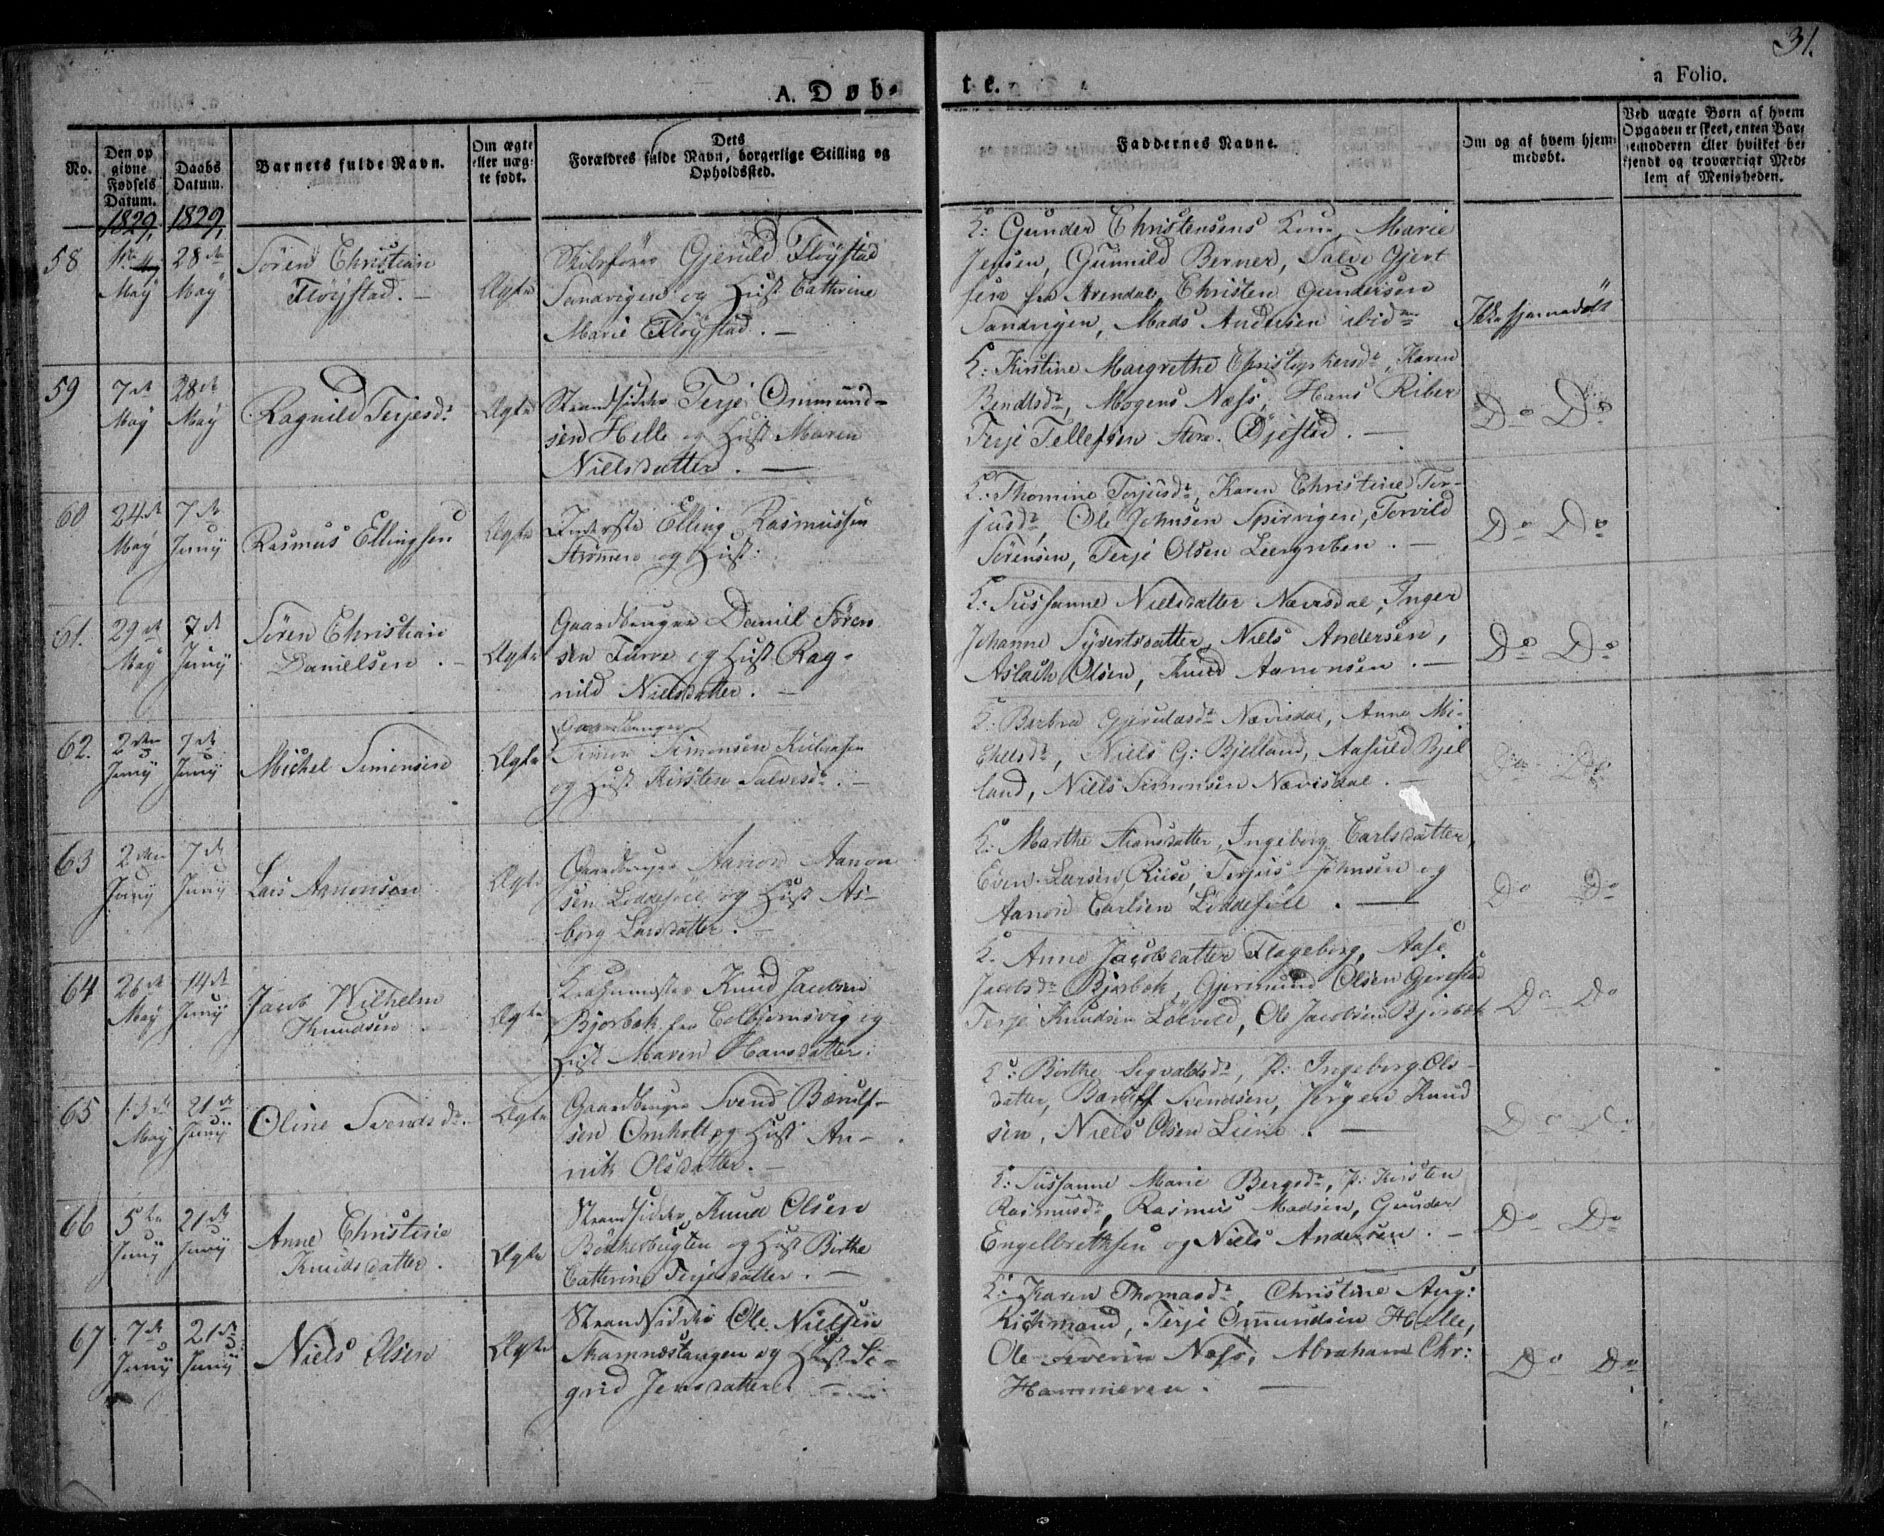 31.
A. Døb-
te.
a Folio.
No.
Den op
givne
Fødsels
Datum.
Daabs
Datum.
Barnets fulde Navn.
Om ægte
eller uæg-
te født.
Dets
Forældres fulde Navn, borgerlige Stilling og
Opholdssted.
Faddernes Navne.
Om og af hvem hjem-
medøbt.
Ved uægte Børn af hvem
Opgaven er skeet, enten Bar-
nemoderen eller hvilket be-
kjendt og troværdigt Med-
lem af Menigheden.
1829, 1829,
58
May
28de
May
Søren Christian
Fløystad. —
Ægte
Skibsfører Gjeruld Fløystad
Sandvigen og Hust Cathrine
Marie Fløystad. —
K: Gunder Christensens Kone, Marie
Jensen, Gunnild Berner, Salve Gjert
sen fra Arendal, Christen Gundersen
Sandvigen, Mads Andersen ibidm
Ikke hjemmedøbt
59
7de
May
28de
May
Ragnild Terjesdr
Ægte
Strandsidder Terje Ommund-
sen Helle og Hust Maren
Nielsdatter. —
K: Kirstine Margrethe Christophersdr, Karen
Bendtsdr, Mogens Næss, Hans Riber
Terje Tellefsen Store Øjestad. —
Do Do
60
24de
May
7de
Juny
Rasmus Ellingsen
Ægte
Inderste Elling Rasmussen
Strømmen og Hust:
K: Thomine Terjusdr, Karen Christine Ter-
jusdr, Ole Johnsen Spirvigen, Torvild
Sørensen, Terje Olsen Leergruben. —
Do Do
61.
29de
May
7de
Juny
Søren Christian
Danielsen. —
Ægte
Gaardbruger Daniel Søren
sen Furre og Hust Rag-
nild Nielsdatter. —
K: Susanne Nielsdatter Nævisdal, Inger
Johanne Syvertsdatter, Niels Andersen,
Aslach Olsen, Knud Aanonsen. —
Do Do
62.
2den
Juny
7de
Juny
Michel Simonsen
Ægte
Gaardbruger
Simon Simonsen
og Hust Kirsten Salvesdr. —
K: Barbra Gjeruldsdr Nævisdal, Anne Mi-
chelsdr, Niels G: Bjelland, Aasuld Bjel
land, Niels Simonsen Nævisdal. —
Do Do
63
2den
Juny
7de
Juny
Lars Aanonsen
Ægte
Gaardbruger Aanon Aanon
sen Løddesøll og Hust As-
borg Larsdatter. —
K: Marthe Hansdatter, Ingeborg Carlsdatter,
Even Larsen Riise, Terjus Johnsen og
Aanon Carlsen Løddesøll. —
Do Do
64
26de
May
14de
Juny
Jacob Wilhelm
Knudsen
Ægte
Knud Jacobsen
Bjorbek fra Colbjørnsvig og
Hust Maren Hansdatter.
K: Anne Jacobsdatter Flageborg, Aase
Jacobsdr Bjorbek, Gjermund Olsen Gjerestad
Terje Knudsen Løvold, Ole Jacobsen Bjorbek
Do Do
65
13de
May
21de
Juny
Oline Svendsdr.
Ægte
Gaardbruger Svend Bærulf-
sen Omholt og Hust An-
nik Olsdatter. —
K: Birthe Sigvaldsdr, p: Ingeborg Ols-
datter, Børulf Svendsen, Jørgen Knud
sen, Niels Olsen Liene. —
Do Do
66
5te
Juny
21de
Juny
Anne Christine
Knudsdatter.
Ægte
Strandsidder Knud Olsen
Bøtkerbugten og Hust Birthe
Cathrine Terjesdatter. —
K: Susanne Marie Bergsdr, p: Kirsten
Rasmusdr, Rasmus Madsen, Gunder
Engelbrethsen og Niels Andersen. —
Do Do
67
7de
Juny
21de
Juny
Niels Olsen
Ægte
Strandsidder Ole Nielsen
Skarpnæstangen og Hust Si-
grid Jensdatter. —
K: Karen Thomasdr, Christine Aug:
Richmand, Terje Ommundsen Helle,
Ole Severin Næss, Abraham Chr:
Hammeren. —
Do Do